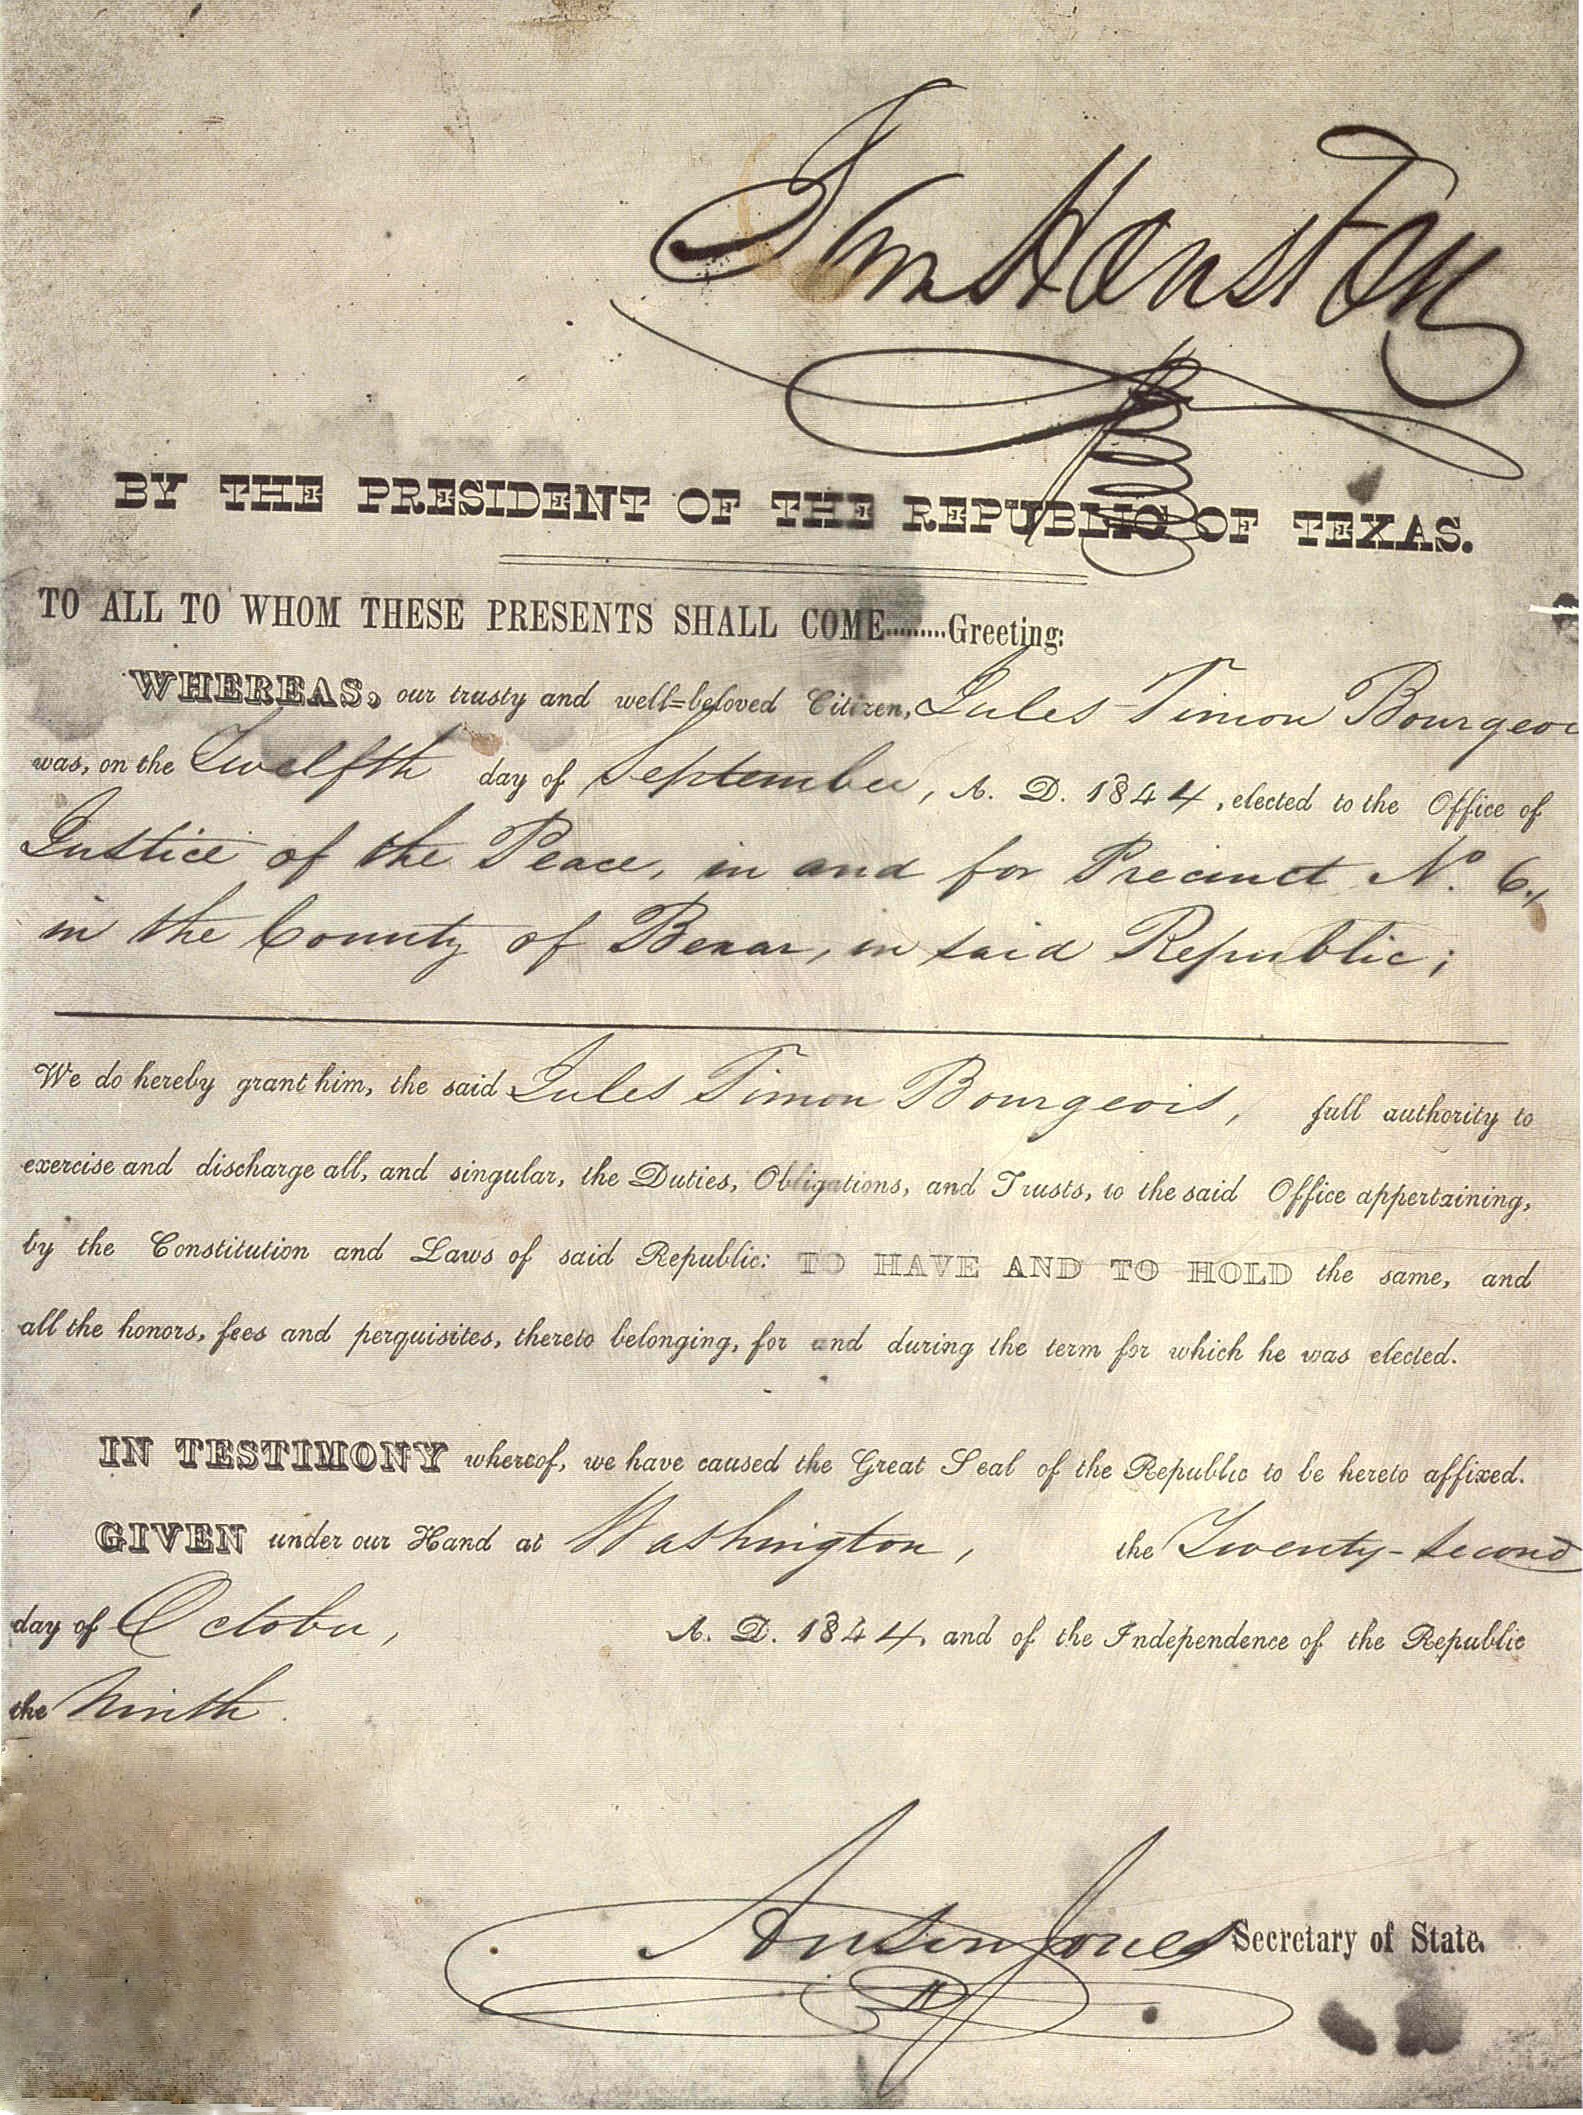 Sam Houston
BY THE PRESIDENT OF THE REPUBLIC OF TEXAS.
TO ALL TO WHOM THESE PRESENTS SHALL COME.........Greeting:
WHEREAS, our trusty and well=beloved Citizen, Jules Timon Bourgeoi
was, on the Twelfth day of September, A. D. 1844, elected to the Office of
Justice of the Peace, in and for Precinct No. 6.,
in the County of Bexar, in said Republic;
We do hereby grant him, the said Jules Timon Bourgeois, full authority to
exercise and discharge all, and singular, the Duties, Obligations, and Trusts, to the said Office appertaining,
by the Constitution and Laws of said Republic: TO HAVE AND TO HOLD the same, and
all the honors, fees and perquisites, thereto belonging, for and during the term for which he was elected.
IN TESTIMONY whereof, we have caused the Great Seal of the Republic to be hereto affixed.
GIVEN under our Hand at Washington, the Twenty-second
day of October, A. D. 1844, and of the Independence of the Republic
the Ninth.
Anson Jones Secretary of State.